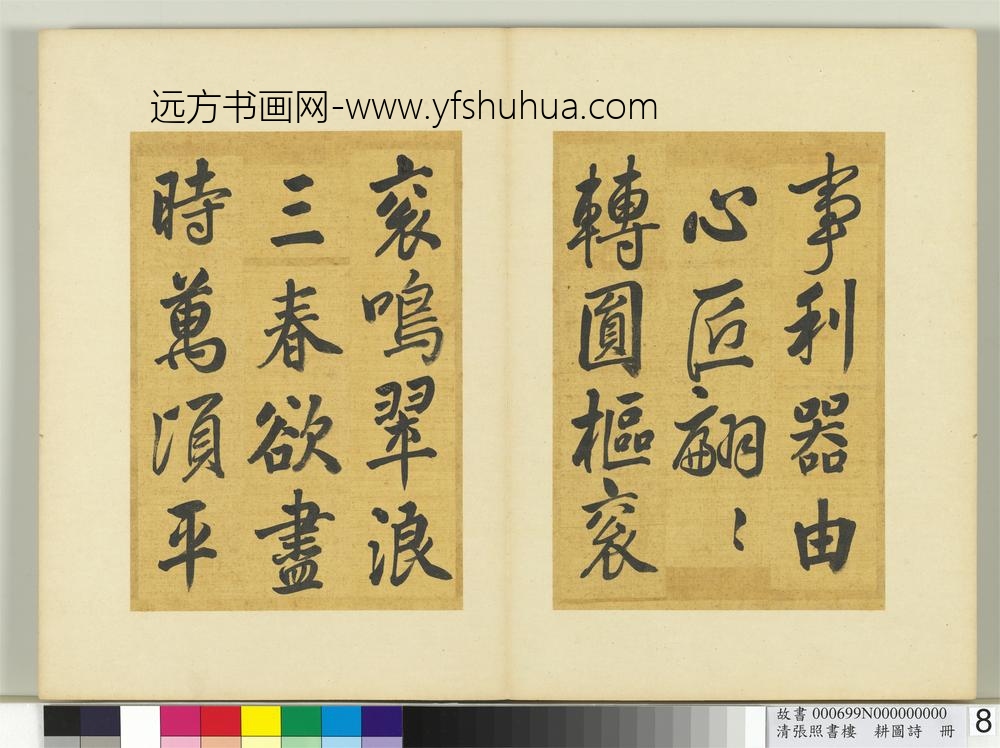 远方书画网-www.yfshuhua.com
事利器由
心匠翩〻
轉圓樞袞
袞鳴翠浪
三春欲盡
時萬頃平
故書 000699N000000000
清張照書樓 耕圖詩 冊
8